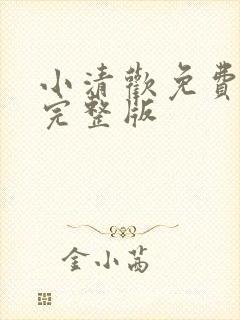 小清歡免費
完整版
金小茜